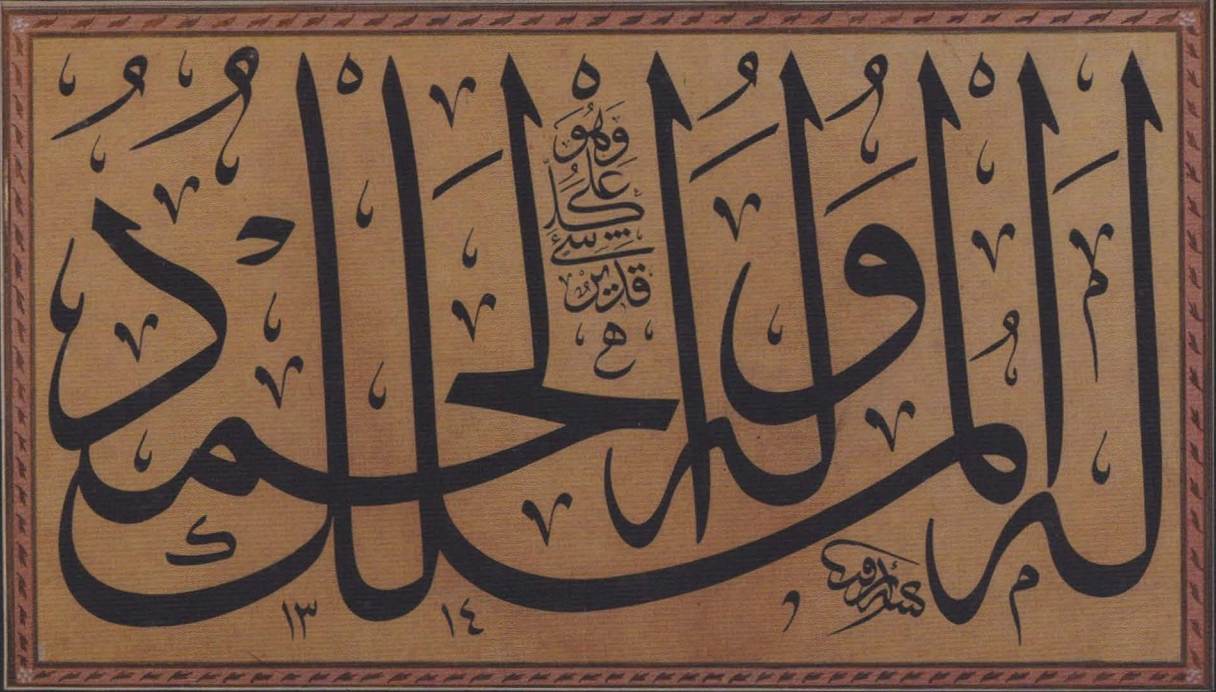 لَهُ الْمُلْكُ وَلَهُ الْحَمْدُ
وَهُوَ
عَلَى
كُلِّ
شَيْءٍ
قَدِيرٌ
١٣ ١٤